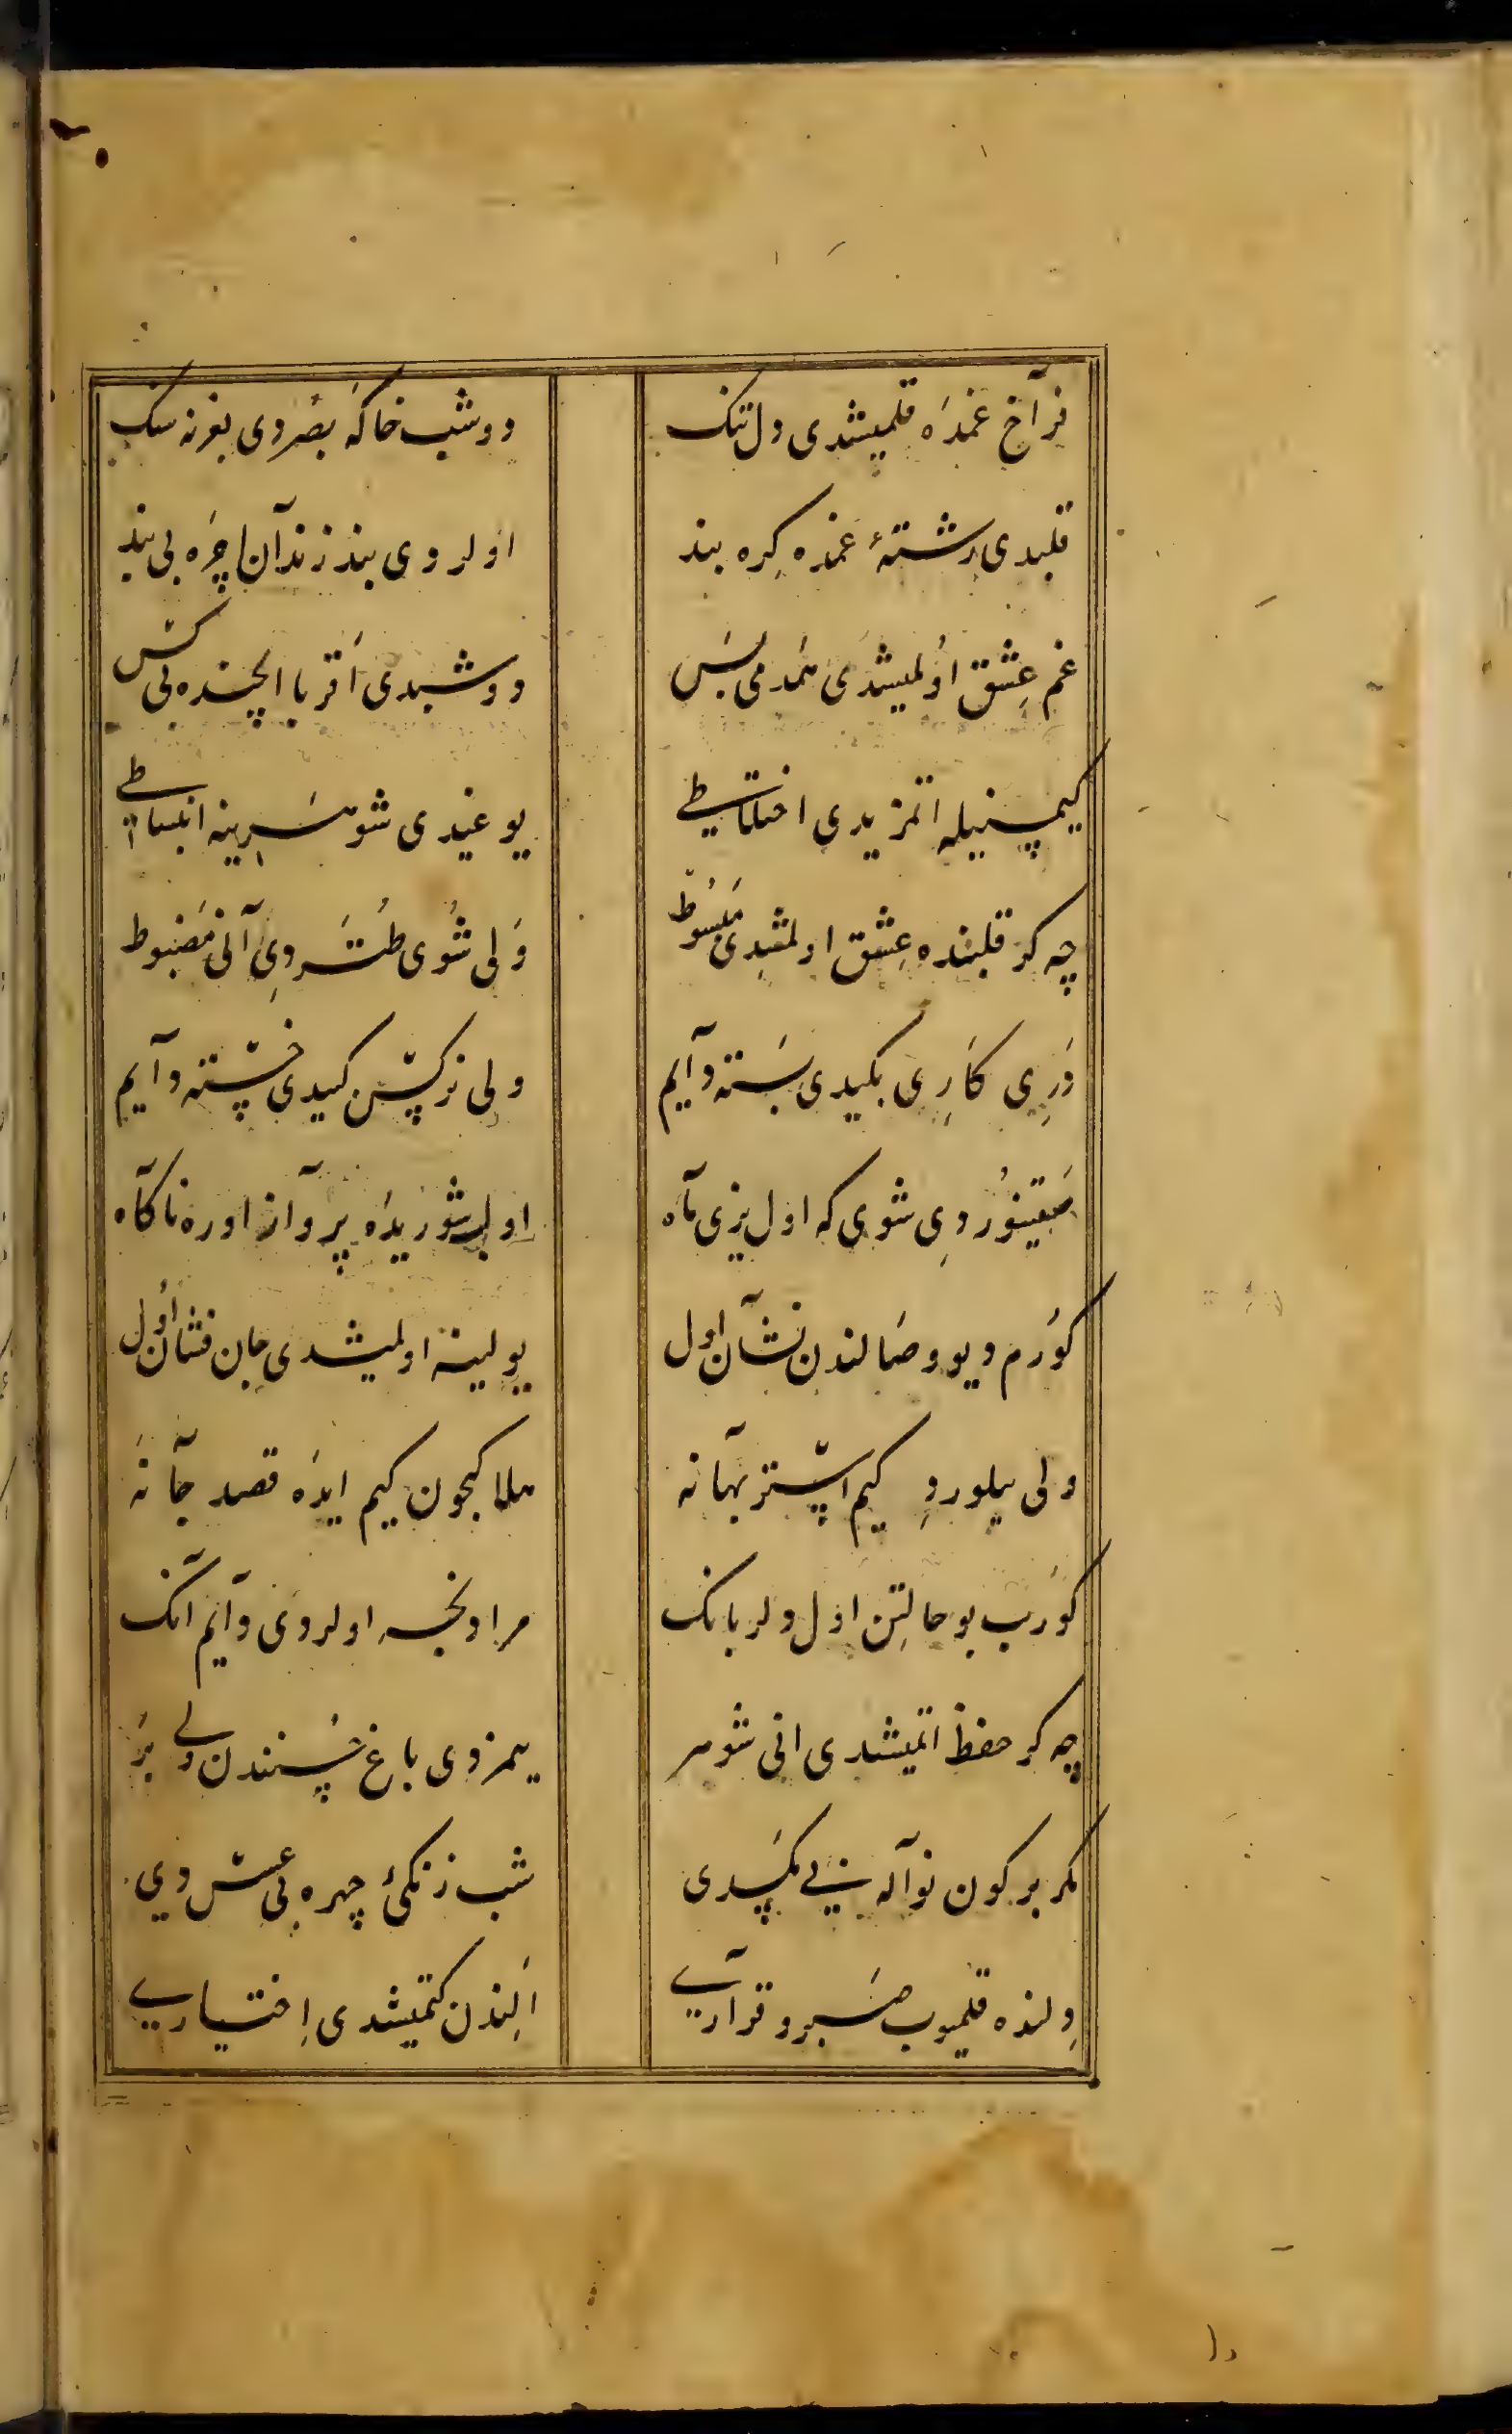 فرآخ غمدَه قلمیشدی دل تنک دوشب خاکَه بصَردی بغرنه سنک
قلبدی رشتهٔ غمده کِره بند اولردی بند زندآن اچره بی بند
غم عِشق اوُلمیشدَی همَدمی بسَ دوشبدی اَقربا ایچنده بی کسّ
کیمسنیله اتمزیدی اختلاطی یوغیدی شوهَرینه انبساطی
چه کر قلبنده عِشق اولمشدی مَبسُوط وَلی شُوی طتَردیِ آنی مَضبوط
دَرِی کَارِی بکیدی بسَته دآیم ولی نرکسّ کیدی خسّته دآیم
صَقینوُردیِ شوی که اول یزی مآه اولب شوریدَه پرواز اوره ناکآه
کوَرم دیو وصَالندن نشآن اول یولینه اولمیشدی جان فشان اوُل
ولی بیلوردِ کیم استّر بهآنه هلاکیچون کیم ایدَه قصد جآنَه
کوَرب بو حالتِن اول دلربانک مرادنجه اولردَی دآیم آنک
چه کر حفظ اتمیشدی انی شوهر یمزدی باغ حُسنندن ولی بَر
مکر بر کون نوآله ینی یکسَدی شب زنکیٔ چهره بی عسسّ دی
دِلنده قلمیوب صَبر و قرآری اَلِندن کتمیشدی اِختیاری